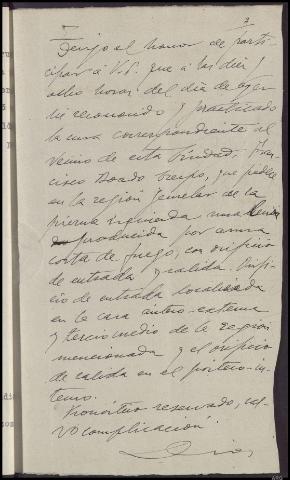 Tengo el honor de parti-
cipar á V.S. que á las diez y
ocho horas del día de ayer
he reconocido y practicado
la cura correspondiente al
vecino de esta Ciudad, Fran-
cisco Boado Crespo, que padece
en la región gemelar de la
pierna izquierda una herida
producida por arma
corta de fuego, con orificio
de entrada y salida. Orifi-
cio de entrada localizada
en la cara antero-externa
y tercio medio de la region
mencionada y el orificio
de salida en el postero-in-
terno.
Pronóstico reservado, sal-
vo complicación.